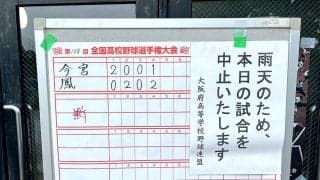 全国高校野球選手権大会
今宮 2 0 0 1
鳳 0 2 0 2
雨天のため、
本日の試合を
中止いたします
大阪府高等学校野球連盟